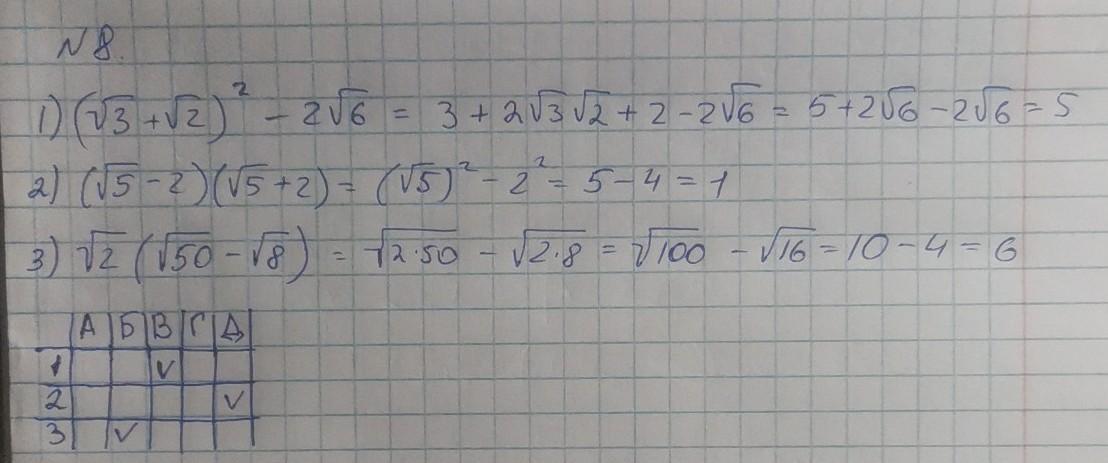 N 8.
1) (√3 + √2)² - 2√6 = 3 + 2√3√2 + 2 - 2√6 = 5 + 2√6 - 2√6 = 5
2) (√5 - 2)(√5 + 2) = (√5)² - 2² = 5 - 4 = 1
3) √2 (√50 - √8) = √2·50 - √2·8 = √100 - √16 = 10 - 4 = 6
А Б В Г Д
1 v
2 v
3 v